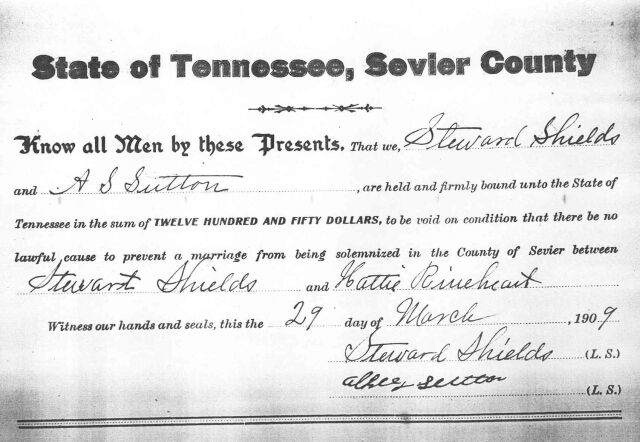 State of Tennessee, Sevier County
Know all Men by these Presents. That we, Steward Shields
and A S Sutton, are held and firmly bound unto the State of
Tennessee in the sum of TWELVE HUNDRED AND FIFTY DOLLARS, to be void on condition that there be no
lawful cause to prevent a marriage from being solemnized in the County of Sevier between
Stewart Shields and Hattie Rineheart
Witness our hands and seals, this the 29 day of March, 1909
Steward Shields (L. S.)
Sutton (L. S.)